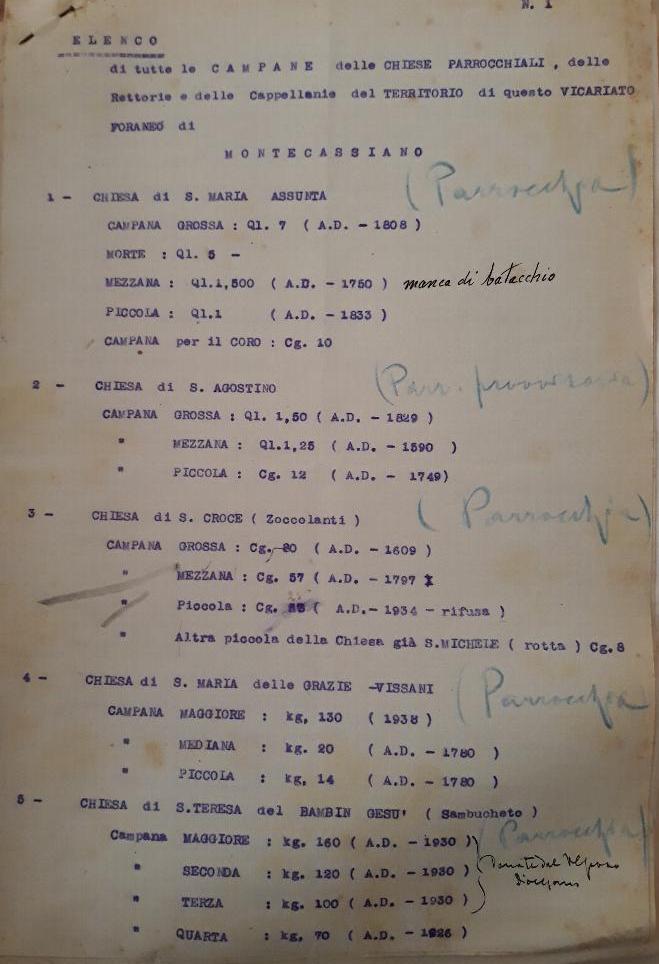 N. 1
ELENCO
di tutte le CAMPANE delle CHIESE PARROCCHIALI , delle
Rettorie e delle Cappellanie del TERRITORIO di questo VICARIATO
FORANEO di
MONTECASSIANO
1 - CHIESA di S. MARIA ASSUNTA (Parrocchia)
CAMPANA GROSSA : Ql. 7 ( A.D. - 1808 )
MORTE : Ql. 5 -
MEZZANA : Ql.1,500 ( A.D. - 1750 ) manca di batacchio
PICCOLA : Ql.1 ( A.D. - 1833 )
CAMPANA per il CORO : Cg. 10
2 - CHIESA di S. AGOSTINO (Parr. provvisoria)
CAMPANA GROSSA : Ql. 1,50 ( A.D. - 1829 )
" MEZZANA : Ql.1,25 ( A.D. - 1590 )
" PICCOLA : Cg. 12 ( A.D. - 1749)
3 - CHIESA di S. CROCE ( Zoccolanti ) (Parrocchia)
CAMPANA GROSSA : Cg. 80 ( A.D. - 1609 )
" MEZZANA : Cg. 57 ( A.D. - 1797 )
" Piccola : Cg. ( A.D.- 1934 - rifusa )
" Altra piccola della Chiesa già S.MICHELE ( rotta ) Cg.8
4 - CHIESA di S. MARIA delle GRAZIE -VISSANI (Parrocchia)
CAMPANA MAGGIORE : kg, 130 ( 1938 )
" MEDIANA : kg. 20 ( A.D. - 1780 )
" PICCOLA : kg, 14 ( A.D. - 1780 )
5 - CHIESA di S.TERESA del BAMBIN GESU' ( Sambucheto )
Campana MAGGIORE : kg. 160 ( A.D. - 1930 ) (Parrocchia)
" SECONDA : kg. 120 ( A.D. - 1930 )
" TERZA : kg. 100 ( A.D. - 1930 )
" QUARTA : kg, 70 ( A.D. - 1926 )